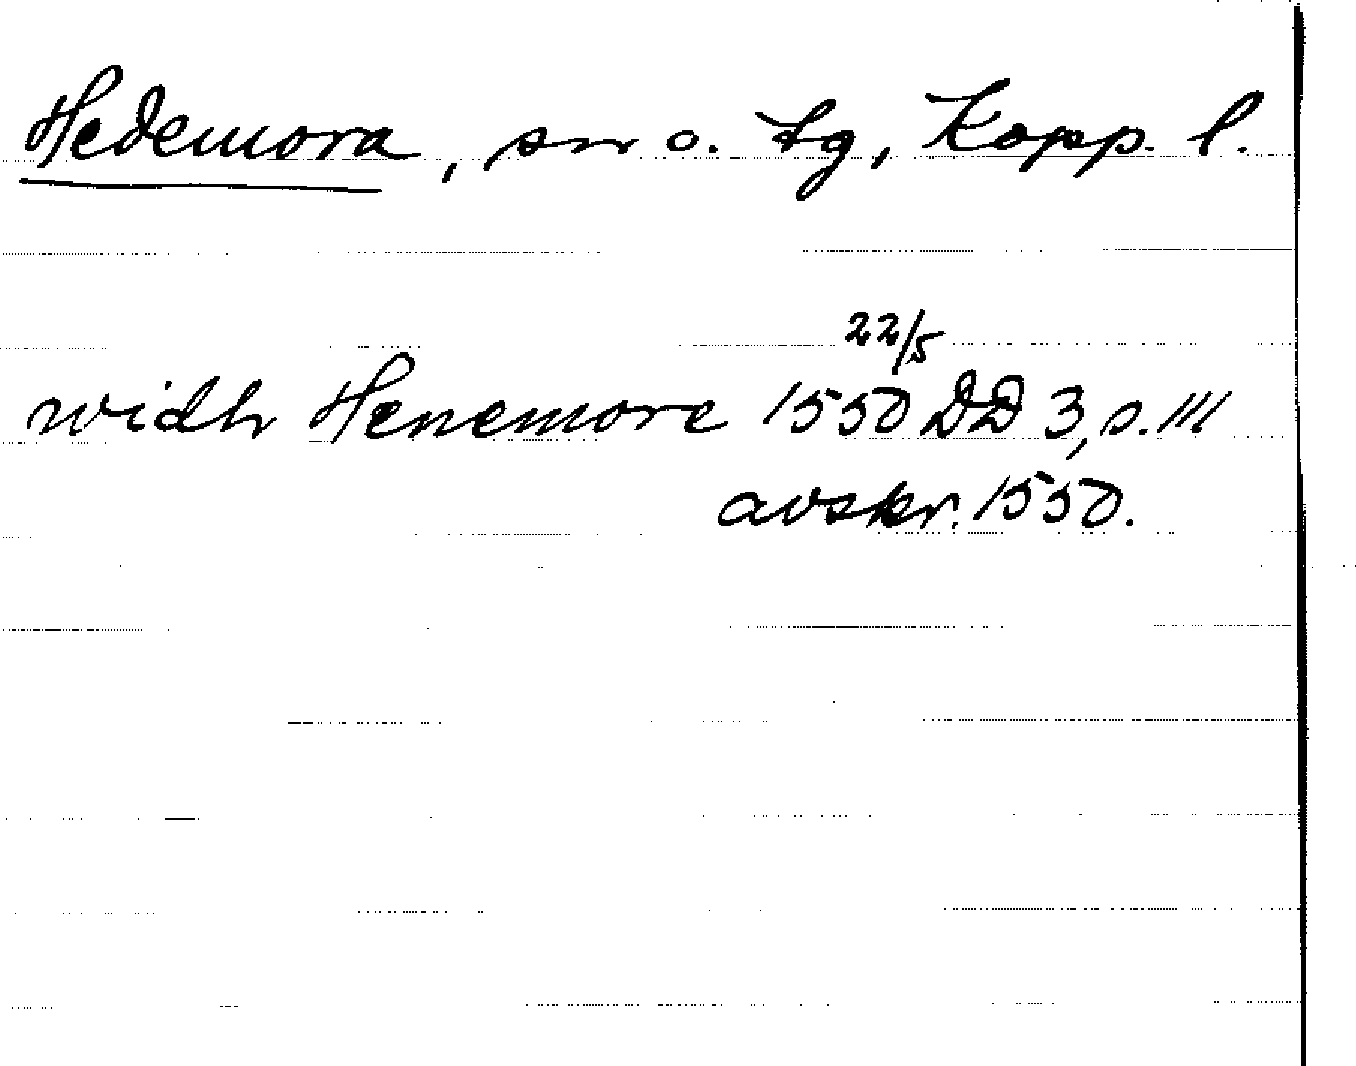 Hedemora, sn o. tg, Kopp. l.
22/5
widh Henemore 1550 DD 3, s. 111
avskr. 1550.